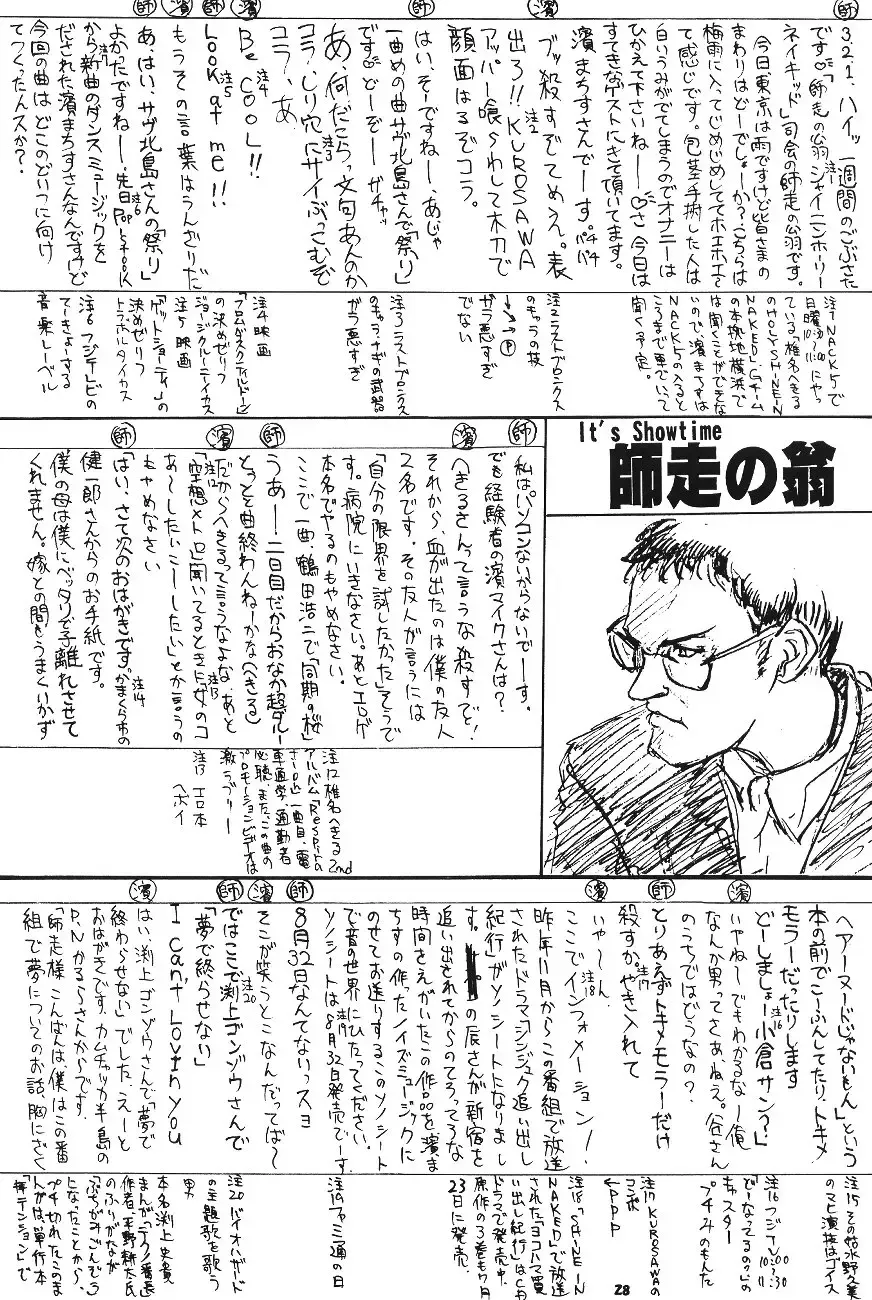 師
3、2、1、ハイッ 一週間のごぶさた
です♡「師走の翁 シャイニンホーリー
注1
ネイキッド」司会の師走の翁です。
今日東京は雨ですけど皆さまの
まわりはどーでしょーか?こちらは
梅雨に入ってじめじめしててホエホエ〜
て感じです。包茎手術した人は
白いうみがでてしまうのでオナニーは
ひかえて下さいねー♡さ今日は
すてきなゲストにきて頂いてます。
濱まちすさんでーす。パチパチ
濱
ブッ殺すでてめえ。表
出ろ!!KUROSAWA
注2
アッパー喰らわして木刀で
顔面はるぞコラ。
師
はい、そーですねー、あじゃ
一曲めの曲サヴ北島さんで「祭り」
です♡どーぞー ガチャッ
濱
あ、何だこらっ文句あんのか
注3
コラ、しり穴にサイぶっこむぞ
コラ、あ
注4
Be COOL!!
師
注5
Look at me!!
濱
もうその言葉はうんざりだ
師
あ、はい、サヴ北島さんの「祭り」
よかったですねー、先日Pop stock
注6
から新曲のダンスミュージックを
だされた濱まちすさんなんですけど
今回の曲はどこのどいつに向け
てつくったんスか?
注1 NACK5で
日曜10:30〜11:00にやっ
ている、椎名へきる
のHOLY SHINE IN
NAKED、Gチーム
の本拠地横浜で
は聞くことができな
いので、濱まちすは
NACK5の入ると
ころまで車でいって
聞く予定。
注2 ラストブロンクス
のキャラの技
↓↘→P
ガラ悪すぎ
でない
注3 ラストブロンクス
のキャラナギの武器
ガラ悪すぎ
注4 映画
「フロムダスクティルドーン」
の決めゼリフ
ジョージクルーニイカス
注5 映画
「ゲットショーティ」の
決めゼリフ
トラボルタイカス
注6 フジテレビの
てーきょーする
音楽レーベル
It's Showtime
師走の翁
師
私はパソコンないからないでーす。
でも経験者の濱マイクさんは?
濱
へきるさんって言うな殺すでど!
それから、血が出たのは僕の友人
2名です。その友人が言うには
「自分の限界を試したかった」そうで
す。病院にいきなさい。あとエロゲ
本名でやるのもやめなさい。
ここで一曲、鶴田浩二で「同期の桜」
師
うあー!二日目だからおなか超ダルー
とっとと曲終わんねーかな(へきる)
濱
だからへきるって言うなよな、あと
注12
「空想メトロ」聞いてるときに女のコ
注13
あ〜したいこーしたい」とか言うの
もやめなさい
師
はい、さて次のおはがきです。かまくら市の
注14
健一郎さんからのお手紙です。
僕の母は僕にベッタリで子離れさせて
くれません。嫁との間もうまくいかず
注12 椎名へきる2nd
アルバム「Respiratio
さーの」一曲目、電
車通学、通勤者
必聴、またこの曲の
プロモーションビデオは
激ラブリー
注13 エロ本
ヘボイ
「ヘアーヌードじゃないもん」という
本の前でこーふんしてたり、トキメ
モラーだったりします
どーしましょー小倉サン?」
注16
濱
いやねーでもわかるなー俺
なんか男ってさぁ、ねえ。谷さん
のうちではどうなの?
師
とりあえずトキメモラーだけ
殺すか。やき入れて
注17
濱
いや〜〜ん
ここでインフォメーション!
注18
昨年11月からこの番組で放送
されたドラマ「シンジュク追い出し
紀行」がソノシートになりまし
す。の辰さんが新宿を
追い出されてからのてろってろな
時間をえがいたこの作品を濱ま
ちすの作ったノイズミュージックに
のせてお送りするこのソノシート
で音の世界にひたってください。
注19
ソノシートは8月32日発売でーす
師
8月32日なんてないっスヨ
濱
そこが笑うとこなんだってば〜
師
ではここで渕上ゴンゾウさんで
注20
「夢で終らせない」
I can't Lovin you
濱
はい、渕上ゴンゾウさんで「夢で
終わらせない」でした、えーと
おはがきです、カムチャッカ半島の
P.N かるらさんからです。
「師走様こんばんは僕はこの番
組で夢についてのお話、胸にざく
注15 その姑水野久美
のマヒ演技はゴイス
注16 フジTV 10:00〜11:30
「どーなってるの!?」の
キャスター
プチみのもんた
注17 KUROSAWAの
コンボ
←PPP
注18 「SHINE IN
NAKED」で放送
された「ヨコハマ買
い出し紀行」はCD
ドラマで発売中、
原作の3巻も7月
23日に発売。
注19 ファミ通の日
注20 バイオハザード
の主題歌を歌う
男
本名渕上史貴
まんが「テクノ番長」
作者、平野耕太氏
のふりがなが
「ふちがみごんぞう」
になったことから、
プチ切れたこのま
んがは、単行本
「拝テンション」で
28